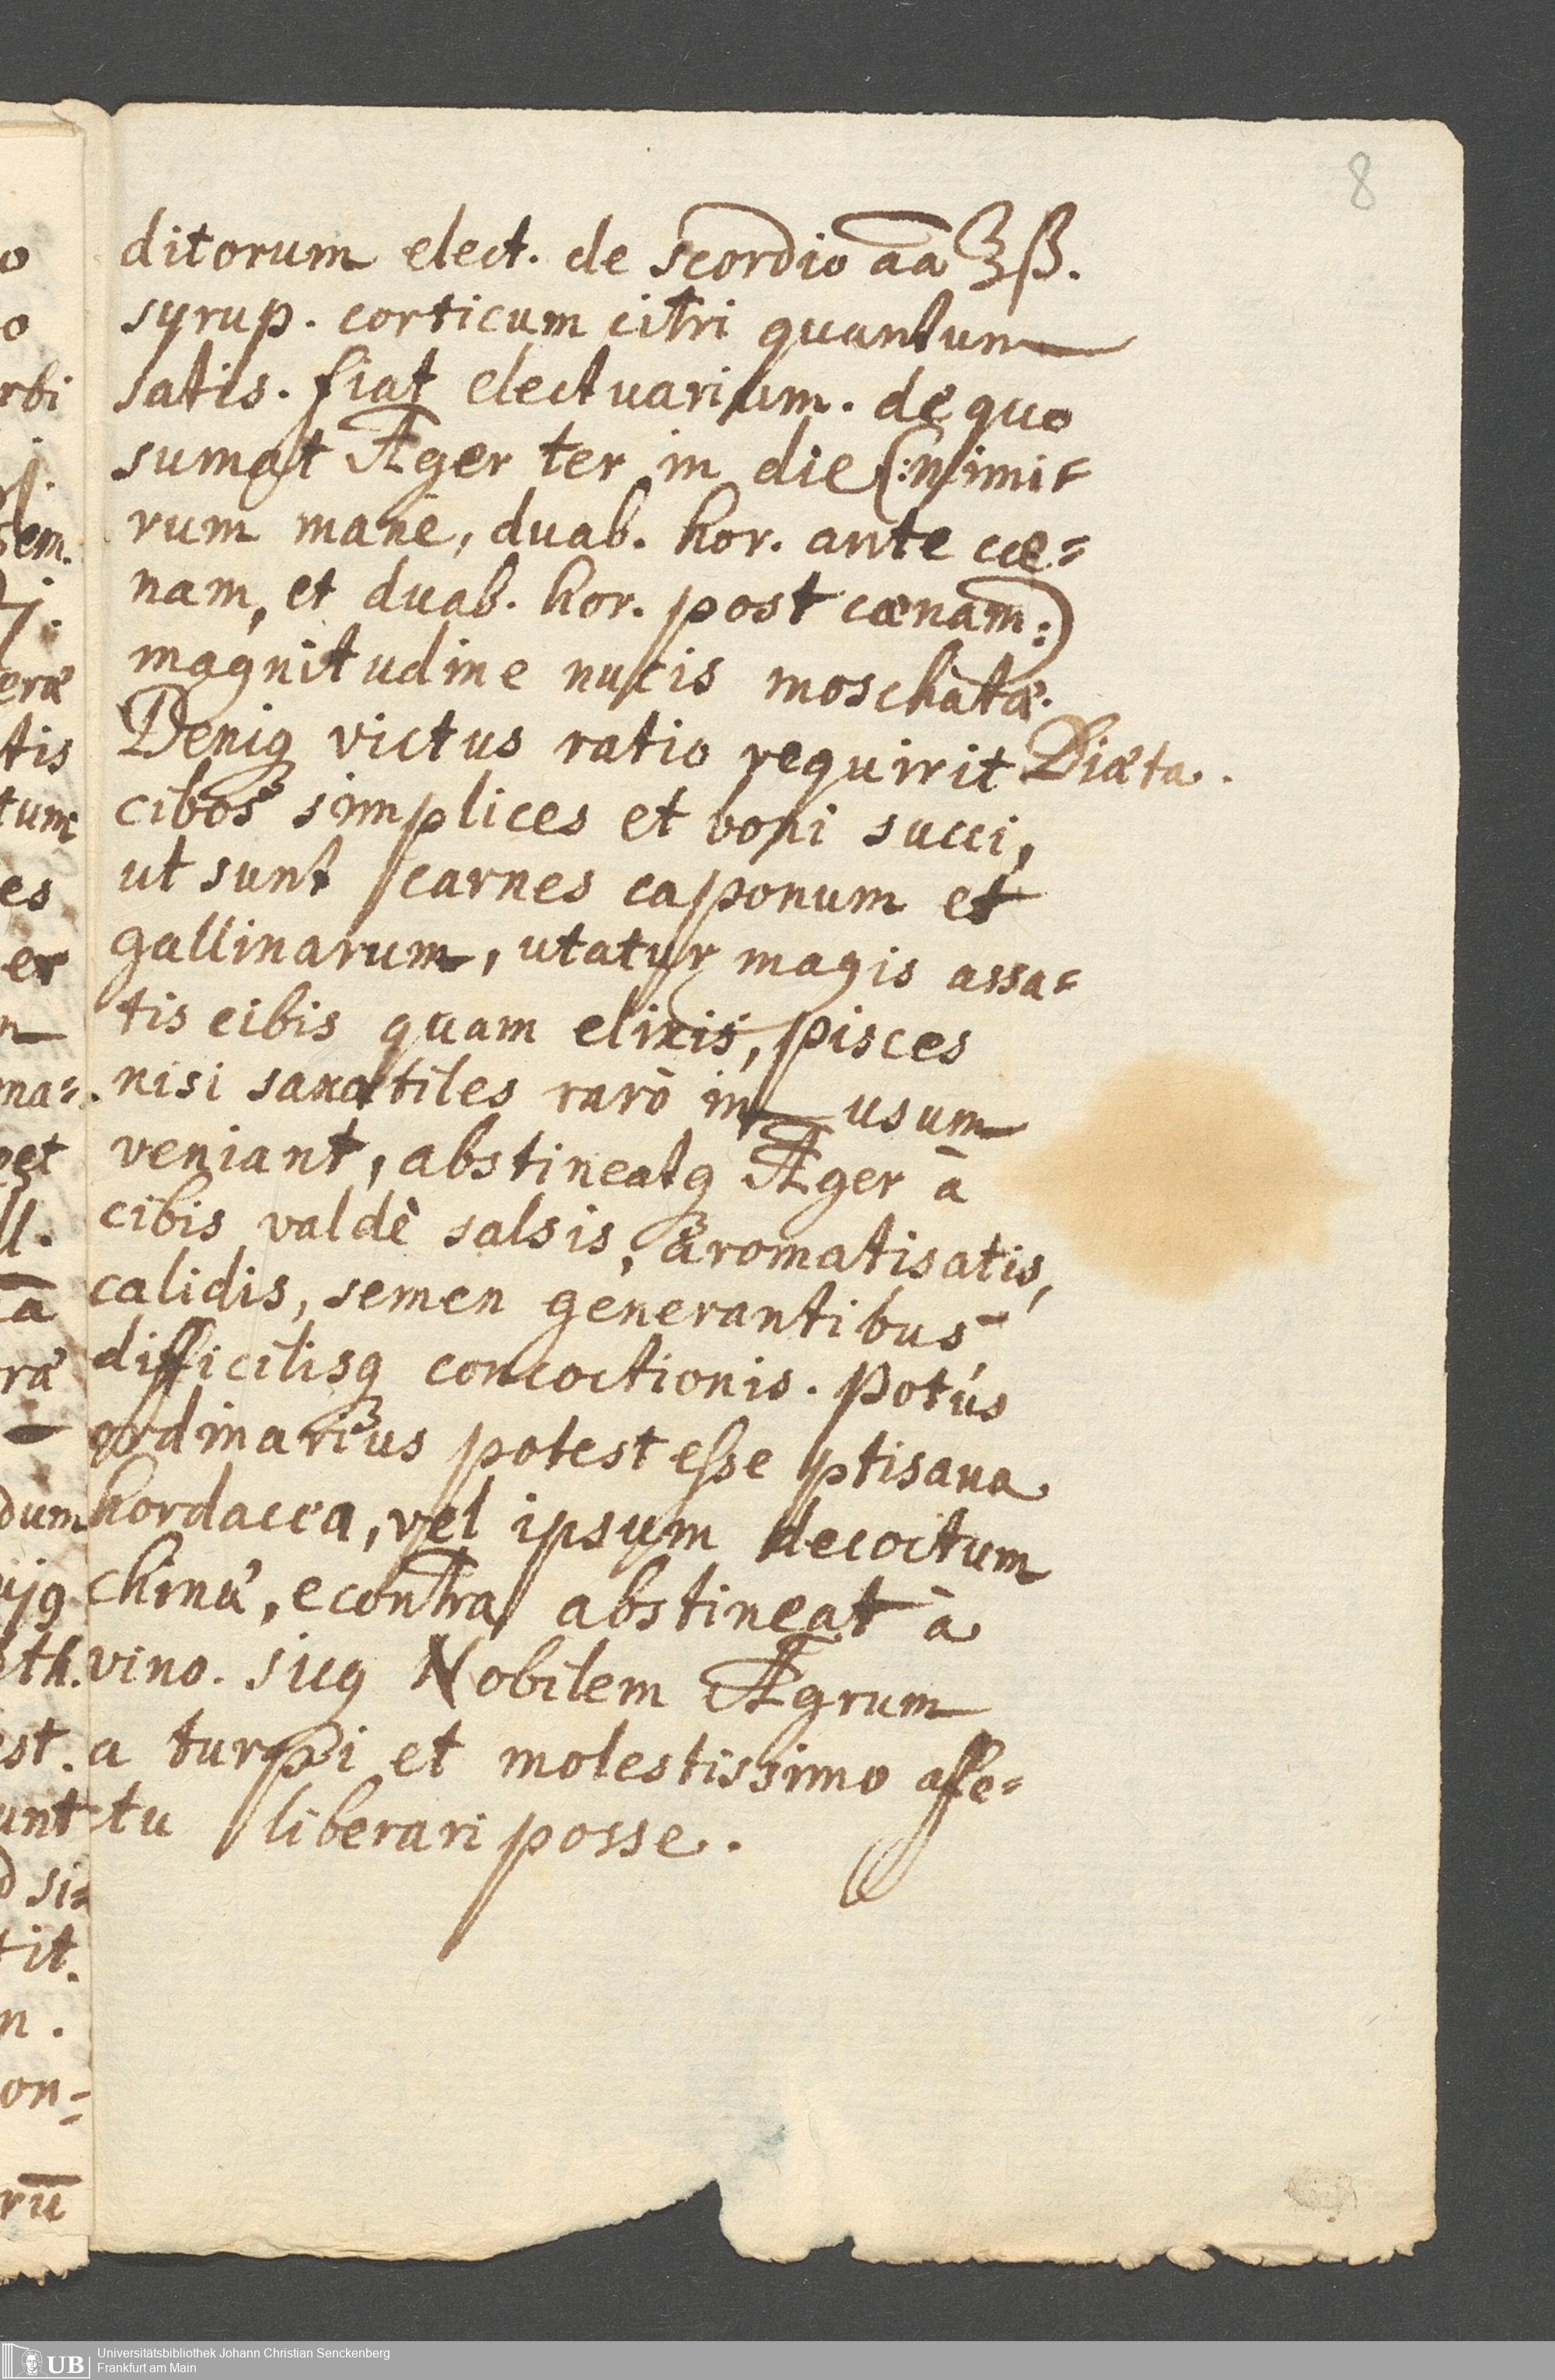 8
ditorum elect. de scordio āā ℥ß.
syrup. corticum citri quantum
satis. fiat electuarium. de quo
sumat Æger ter in die (: nimi=
rum mane, duab. hor. ante cœ=
nam, et duab. hor. post cœnam :)
magnitudine nucis moschatæ.
Deniq victus ratio requirit Diæta.
cibos simplices et boni succi,
ut sunt carnes caponum et
gallinarum, utatur magis assa=
tis cibis quam elixis, pisces
nisi saxatiles rarò in usum
veniant, abstineatq Æger à
cibis valdè salsis, aromatisatis,
calidis, semen generantibus
difficilisq concoctionis. Potús
ordinarius potest esse ptisana
hordacea, vel ipsum decoctum
chinæ, econtra abstineat à
vino. sicq Nobilem Ægrum
a turpi et molestissimo affe=
ctu liberari posse.
UB Universitätsbibliothek Johann Christian Senckenberg
Frankfurt am Main